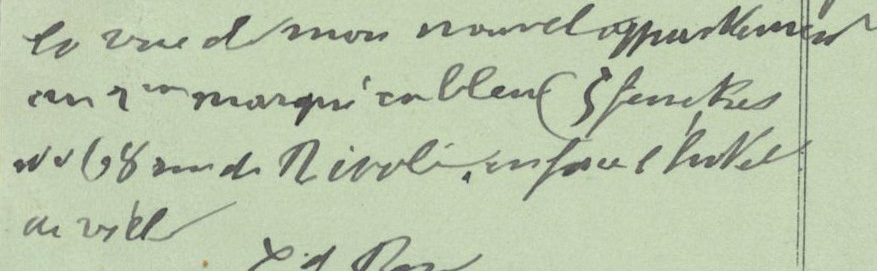 la vue de mon nouvel appartement
au 2me marqué en bleu (5 fenetres
No 68 rue de Rivoli, en face l'hotel
de ville